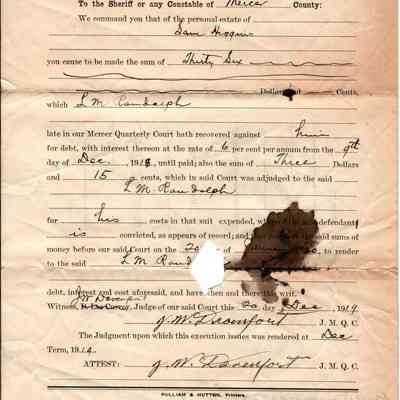 To the Sheriff or any Constable of Mercer County:
We command you that of the personal estate of
Sam Higgins
you cause to be made the sum of Thirty Six
Dollars and Cents,
which L M Randolph
late in our Mercer Quarterly Court hath recovered against him
for debt, with interest thereon at the rate of 6 per cent per annum from the 9th
day of Dec, 1918, until paid; also the sum of Three Dollars
and 15 cents, which in said Court was adjudged to the said
L M Randolph
for his costs in that suit expended, defendant
is convicted, as appears of record; and said sums of
money before our said Court on the 20 of to render
to the said L M Rand
debt, interest and cost aforesaid, and have then and there this writ.
J W Davenport
Witness, Judge of our said Court this 20 day Dec, 1919
J. W. Davenport J. M. Q. C.
The Judgment upon which this execution issues was rendered at Dec
Term, 191
ATTEST: J. W. Davenport J. M. Q. C.
PULLIAM & NUTTER, FIXINS.